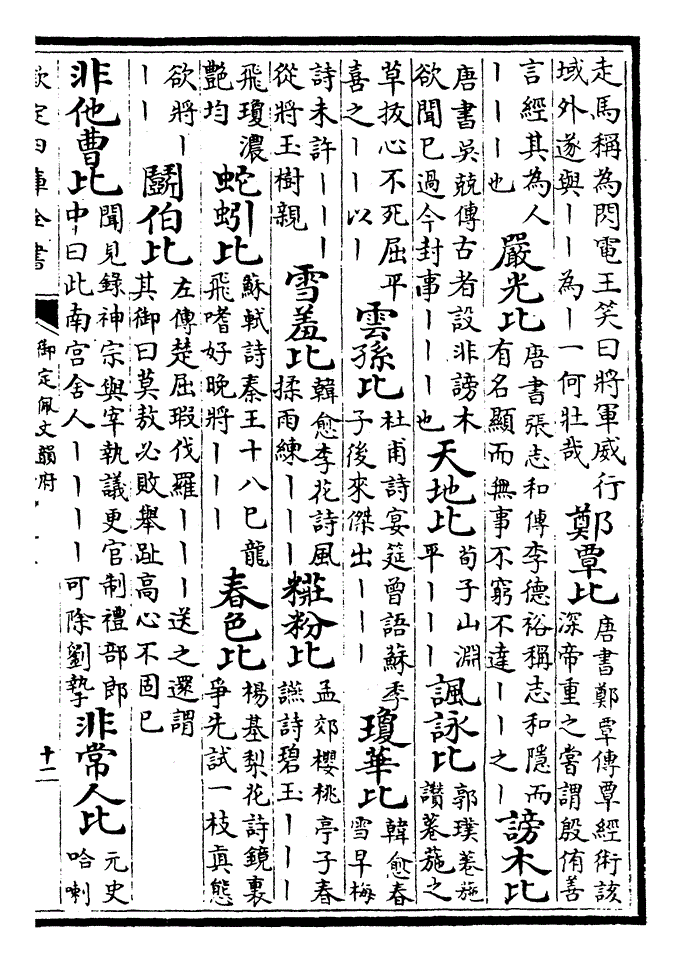 走馬稱為閃電王笑曰將軍威行
域外遂與〡〡為〡一何壯哉
鄭覃比
唐書鄭覃傳覃經術該
深帝重之嘗謂殷侑善
言經其為人
〡〡〡也
嚴光比
唐書張志和傳李德裕稱志和隱而
有名顯而無事不窮不達〡〡之〡
謗木比
唐書吳兢傳古者設非謗木
欲聞已過今封事〡〡〡也
天地比
荀子山淵
平〡〡〡
諷詠比
郭璞菤葹
讚菤葹之
草抜心不死屈平
喜之〡〡以〡
雲孫比
杜甫詩宴筵曾語蘇季
子後來傑出〡〡〡
瓊華比
韓愈春
雪早梅
詩未許〡〡〡
從將玉樹親
雪羞比
韓愈李花詩風
揉雨練〡〡〡
糚粉比
孟郊櫻桃亭子春
讌詩碧玉〡〡〡
飛瓊濃
艷均
蛇蚓比
蘇軾詩秦王十八已龍
飛嗜好晚將〡〡〡
春色比
楊基梨花詩鏡裏
爭先試一枝真態
欲將〡
〡〡
鬬伯比
左傳楚屈瑕伐羅〡〡〡送之還謂
其御曰莫敖必敗舉趾高心不固已
非他曹比
聞見錄神宗與宰執議更官制禮部郎
中曰此南宮舍人〡〡〡〡可除劉摯
非常人比
元史
哈喇
欽定四庫全書
御定佩文韻府
十二